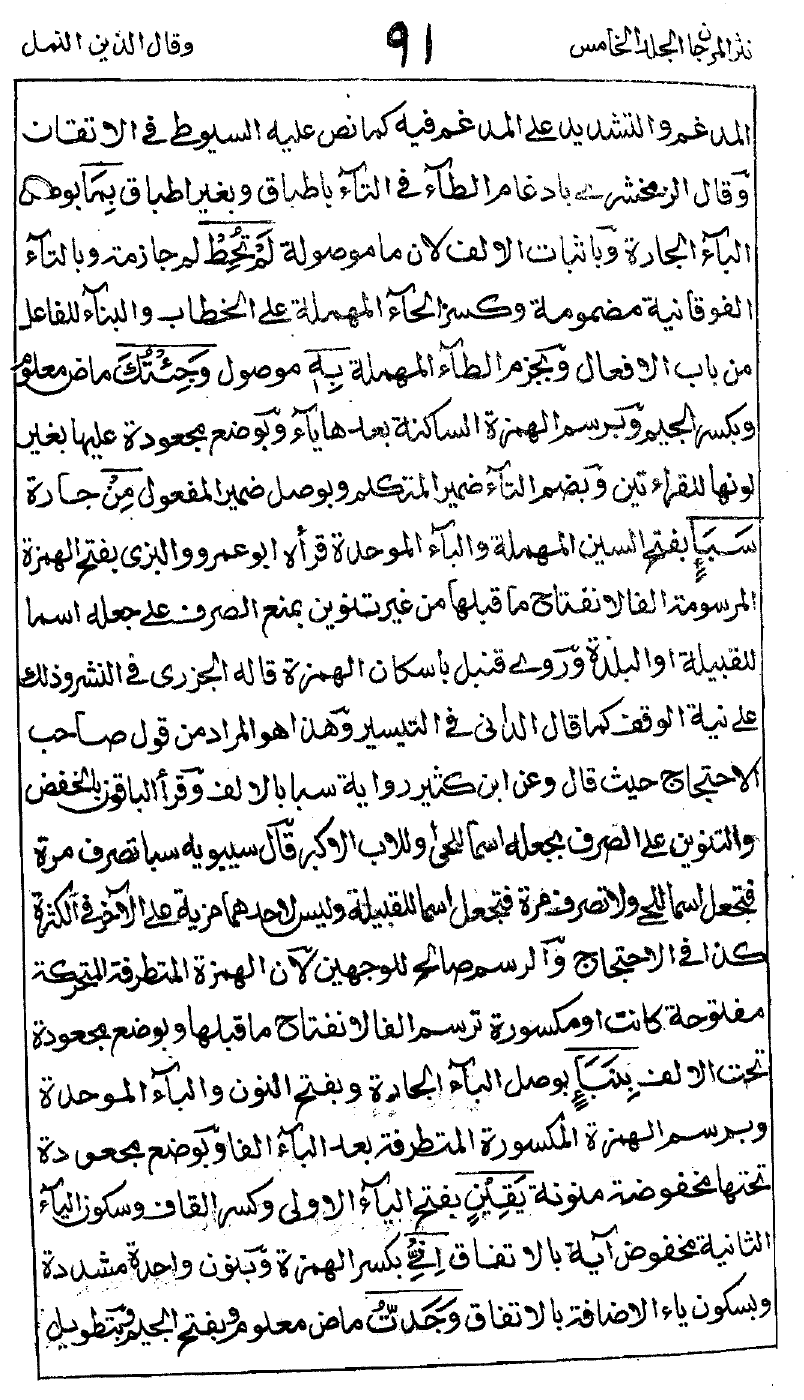 نثر المرجان الجلد الخامس ٩١ وقال الذين النمل
المدغم والتشديد على المدغم فيه كما نص عليه السيوطى فى الاتقان
وقال الزمخشرى بادغام الطآء فى التآء باطباق وبغير اطباق بِمَا بوصل
البآء الجارة وباثبات الالف لان ما موصولة لَمْ تُحِطْ لم جازمة وبالتآء
الفوقانية مضمومة وكسر الحآء المهملة على الخطاب والبنآء للفاعل
من باب الافعال وبجزم الطآء المهملة بِهٖ موصول وَجِئْتُكَ ماض معلوم
وبكسر الجيم وبرسم الهمزة الساكنة بعدها يآء وبوضع مجعودة عليها بغير
لونها للقراءتين وبضم التآء ضمير المتكلم وبوصل ضمير المفعول مِنْ جارة
سَبَإٍ بفتح السين المهملة والبآء الموحدة قرأه ابو عمرو والبزى بفتح الهمزة
المرسومة الفا لانفتاح ما قبلها من غير تنوين بمنع الصرف على جعله اسما
للقبيلة او البلدة وروى قنبل باسكان الهمزة قاله الجزرى فى النشر وذلك
على نية الوقف كما قال الدانى فى التيسير وهذا هو المراد من قول صاحب
الاحتجاج حيث قال وعن ابن كثير رواية سبا بالالف وقرأ الباقون بالخفض
والتنوين على الصرف بجعله اسما للحى او للاب الاكبر قال سيبويه سبا تصرف مرة
فتجعل اسما للحى ولا تصرف مرة فتجعل اسما للقبيلة وليس لاحدهما مزية على الآخر فى الكثرة
كذا فى الاحتجاج والرسم صالح للوجهين لان الهمزة المتطرفة المتحركة
مفتوحة كانت او مكسورة ترسم الفا لانفتاح ما قبلها وبوضع مجعودة
تحت الالف بِنَبَإٍ بوصل البآء الجارة وبفتح النون والبآء الموحدة
وبرسم الهمزة المكسورة المتطرفة بعد البآء الفا وبوضع مجعودة
تحتها مخفوضة منونة يَقِيْنٍ بفتح اليآء الاولى وكسر القاف وسكون اليآء
الثانية مخفوض آية بالاتفاق اِنِّىْ بكسر الهمزة وبنون واحدة مشددة
وبسكون ياء الاضافة بالاتفاق وَجَدتُّ ماض معلوم وبفتح الجيم وبتطويل